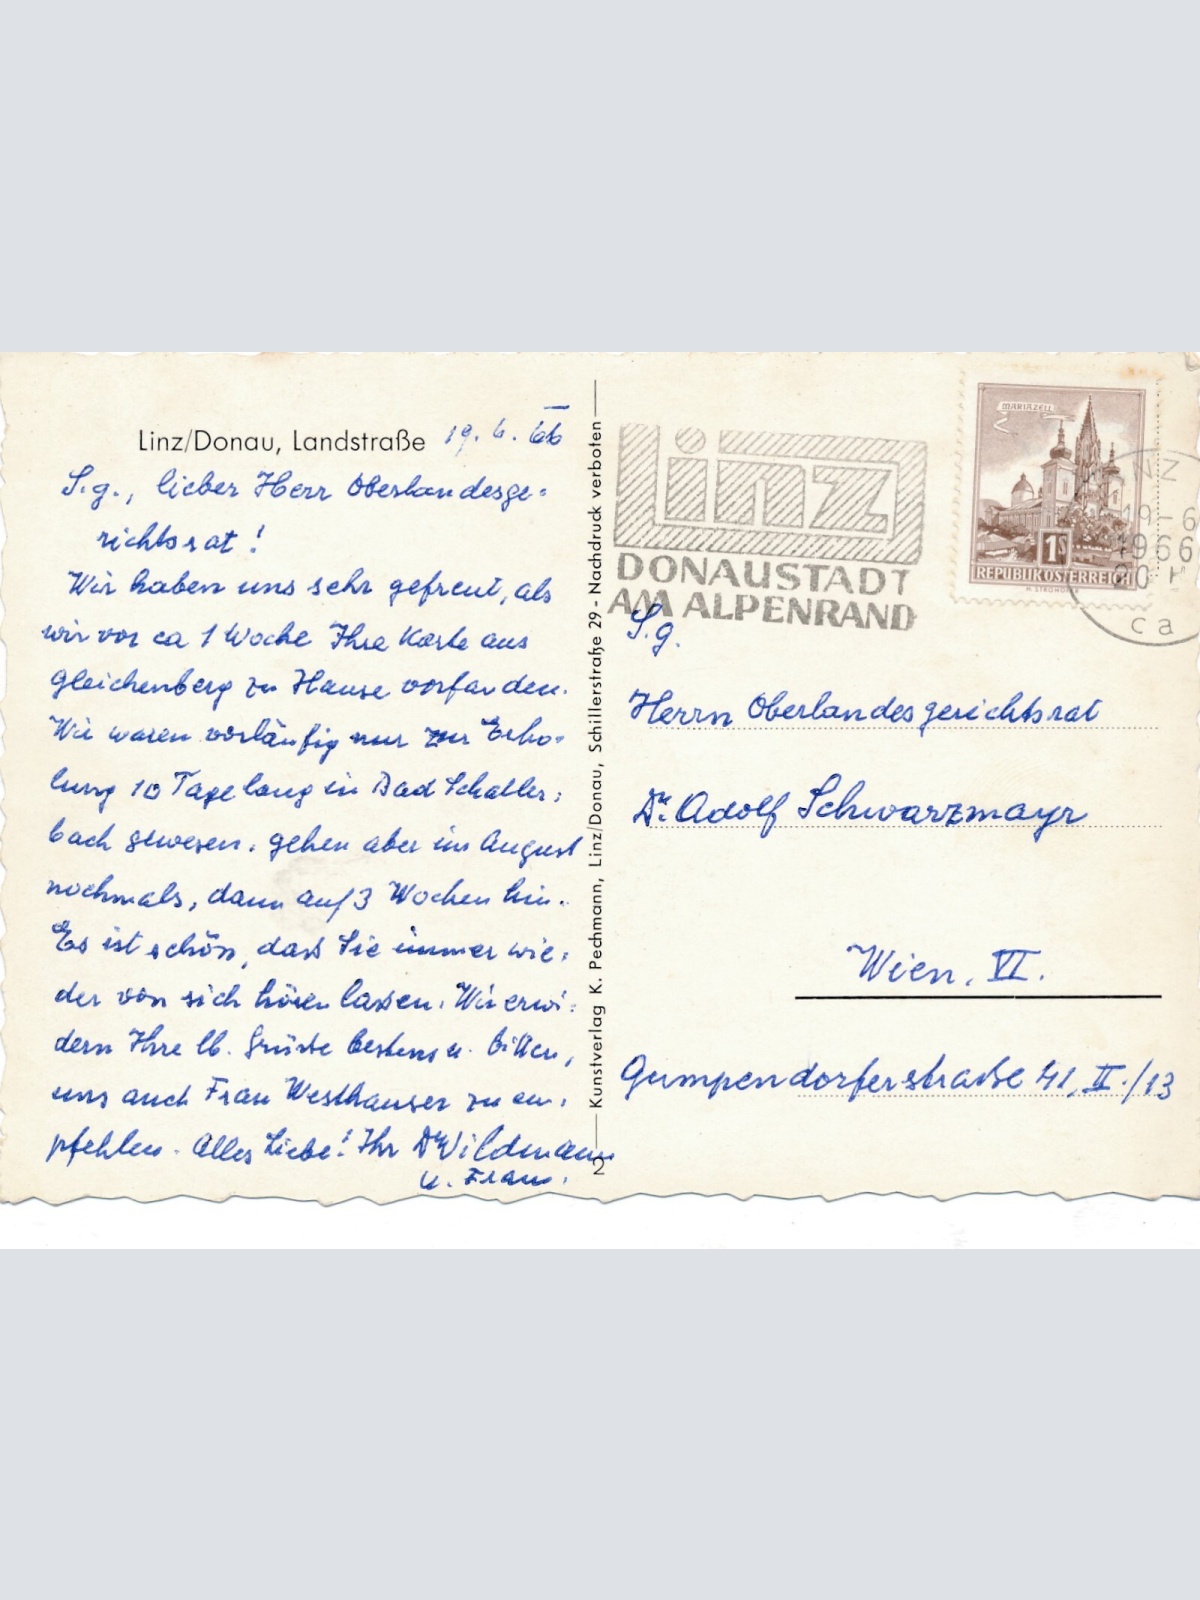 Linz/Donau, Landstraße 19.6.66
S.g., lieber Herr Oberlandesge-
richtsrat!
Wir haben uns sehr gefreut, als
wir vor ca 1 Woche Ihre Karte aus
Gleichenberg zu Hause vorfanden.
Wir waren vorläufig nur zur Erho-
lung 10 Tage lang in Bad Schaller-
bach gewesen. gehen aber im August
nochmals, dann auf 3 Wochen hin.
Es ist schön, dass Sie immer wie-
der von sich hören lassen. Wir erwi-
dern Ihre lb. Grüsse bestens u. bitten,
uns auch Frau Westhauser zu em-
pfehlen. Alles Liebe! Ihr Dr Wildmann
u. Frau.
Kunstverlag K. Pechmann, Linz/Donau, Schillerstraße 29 - Nachdruck verboten
2
linz
DONAUSTADT
AM ALPENRAND
MARIAZELL
1S
REPUBLIK ÖSTERREICH
LINZ
19-6
1966
20
ca
S.g.
Herrn Oberlandesgerichtsrat
Dr. Adolf Schwarzmayr
Wien, VI.
Gumpendorferstraße 41, II./13